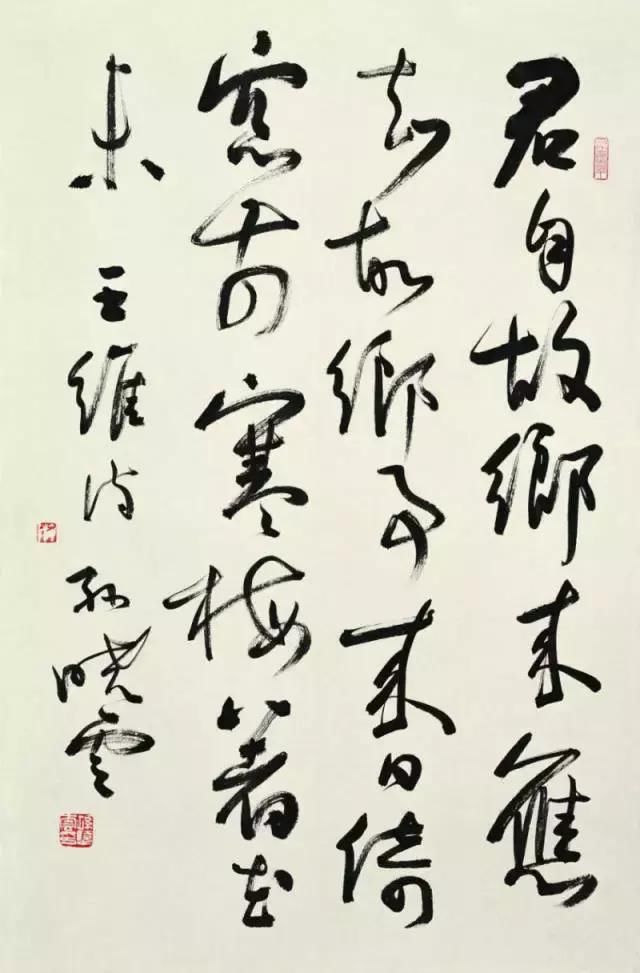 君自故鄉来應
知故鄉事来日綺
窓前寒梅著花
未 王維詩 孫曉雲